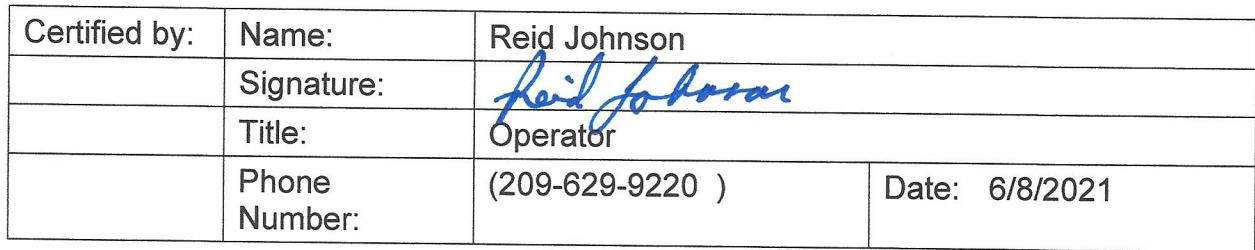 Certified by: Name: Reid Johnson
Signature: Reid Johnson
Title: Operator
Phone Number: (209-629-9220 ) Date: 6/8/2021